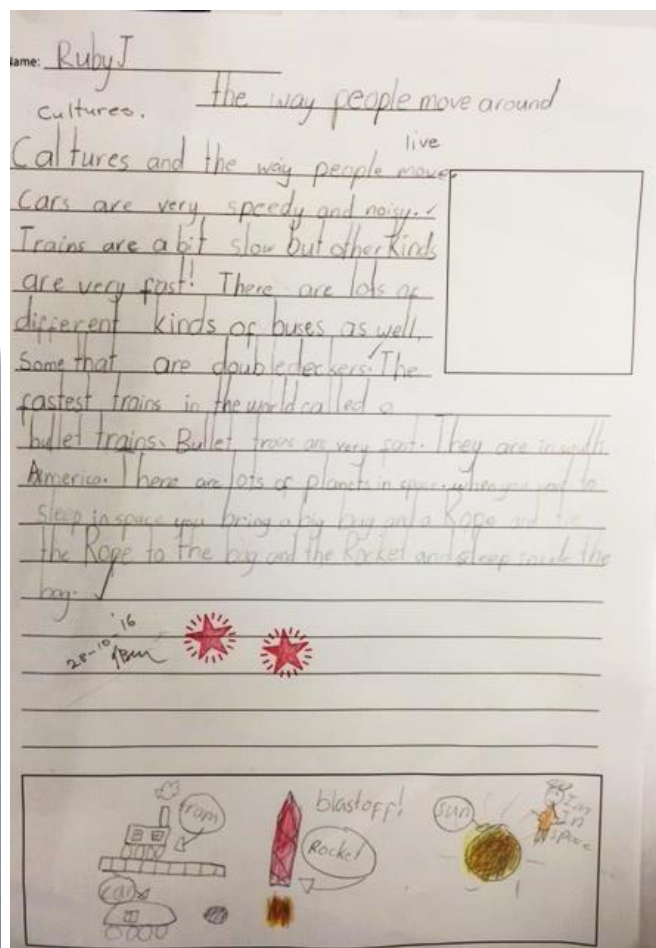 ame: Ruby J
the way people move around
Cultures.
live
Caltures and the way people move.
Cars are very speedy and noisy.
Trains are a bit slow but other kinds
are very fast! There are lots of
different kinds of buses as well,
Some that are doubledeckers. The
fastest trains in the world called a
bullet trains. Bullet trains are very fast. They are in south
America. There are lots of planets in space. when you to
sleep in space you bring a big bag and a Rope and tie
the Rope to the bag and the Rocket and sleep inside the
bag.
28-10-'16
tram
blastoff!
Rocket
sun
I'm
In
space
car